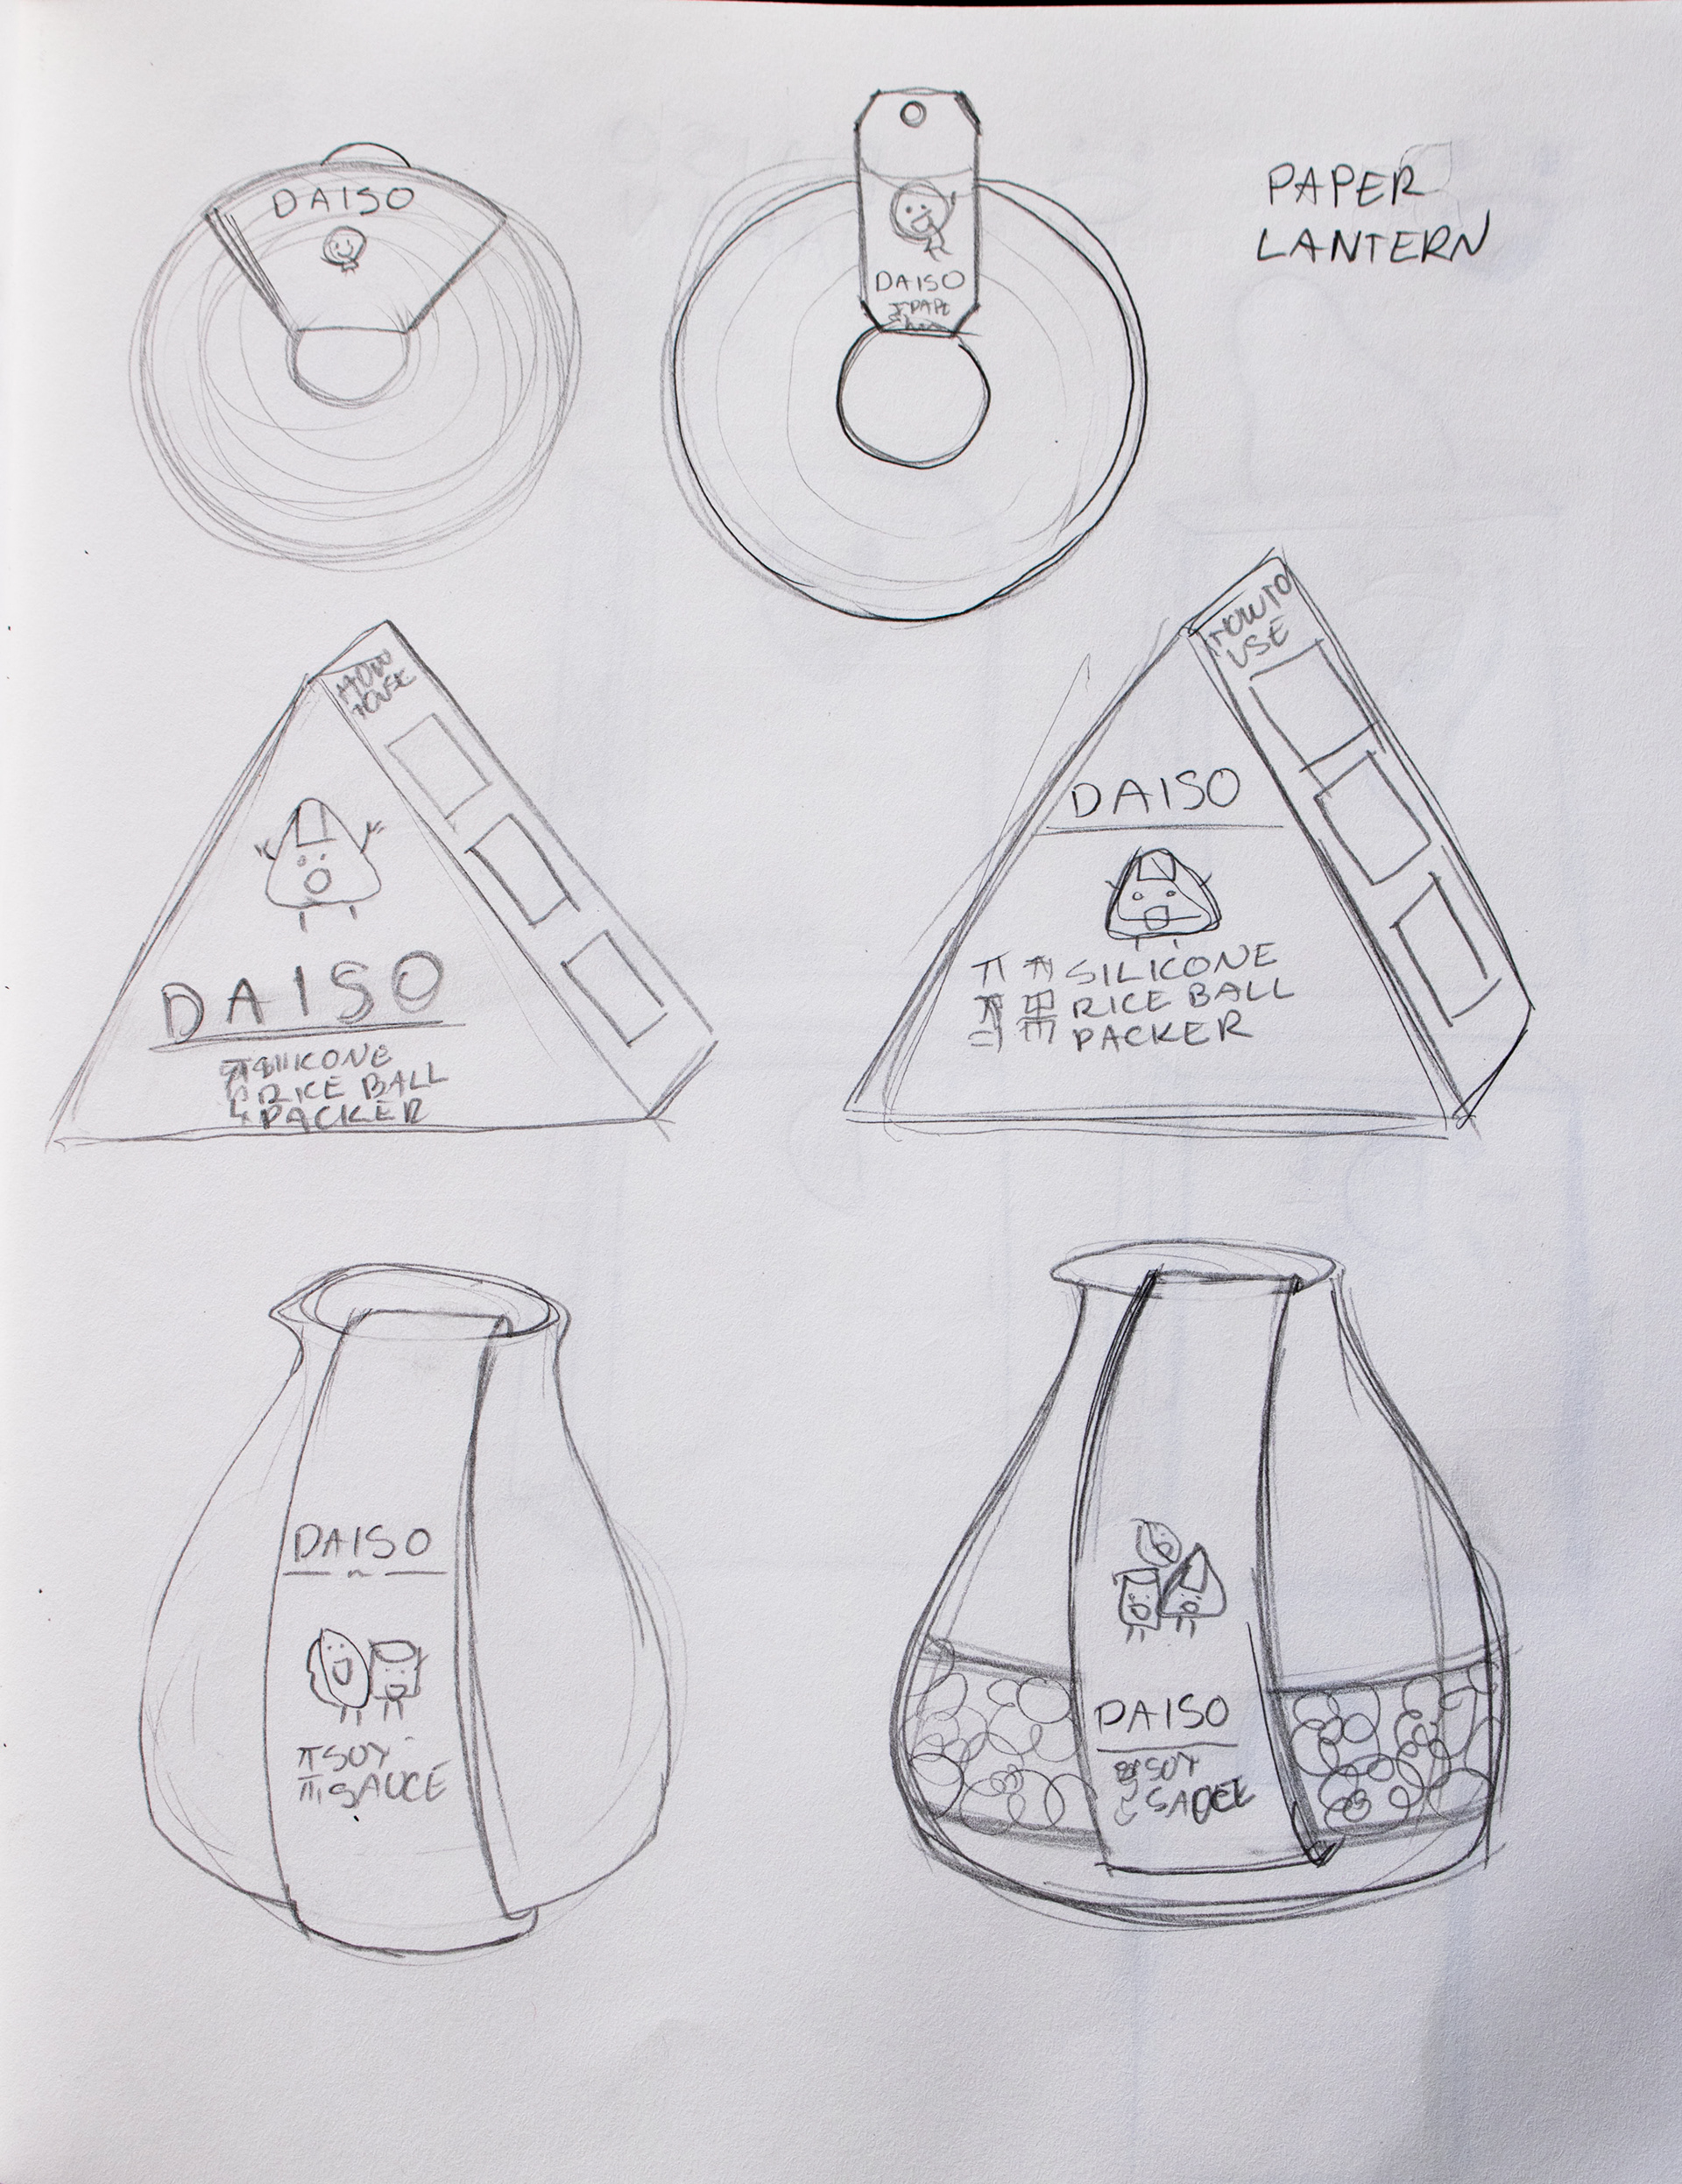 DAISO
DAISO
PAPER
LANTERN
HOW
TO USE
DAISO
SILICONE
RICE BALL
PACKER
HOW TO
USE
DAISO
SILICONE
RICE BALL
PACKER
DAISO
SOY
SAUCE
DAISO
SOY
SAUCE